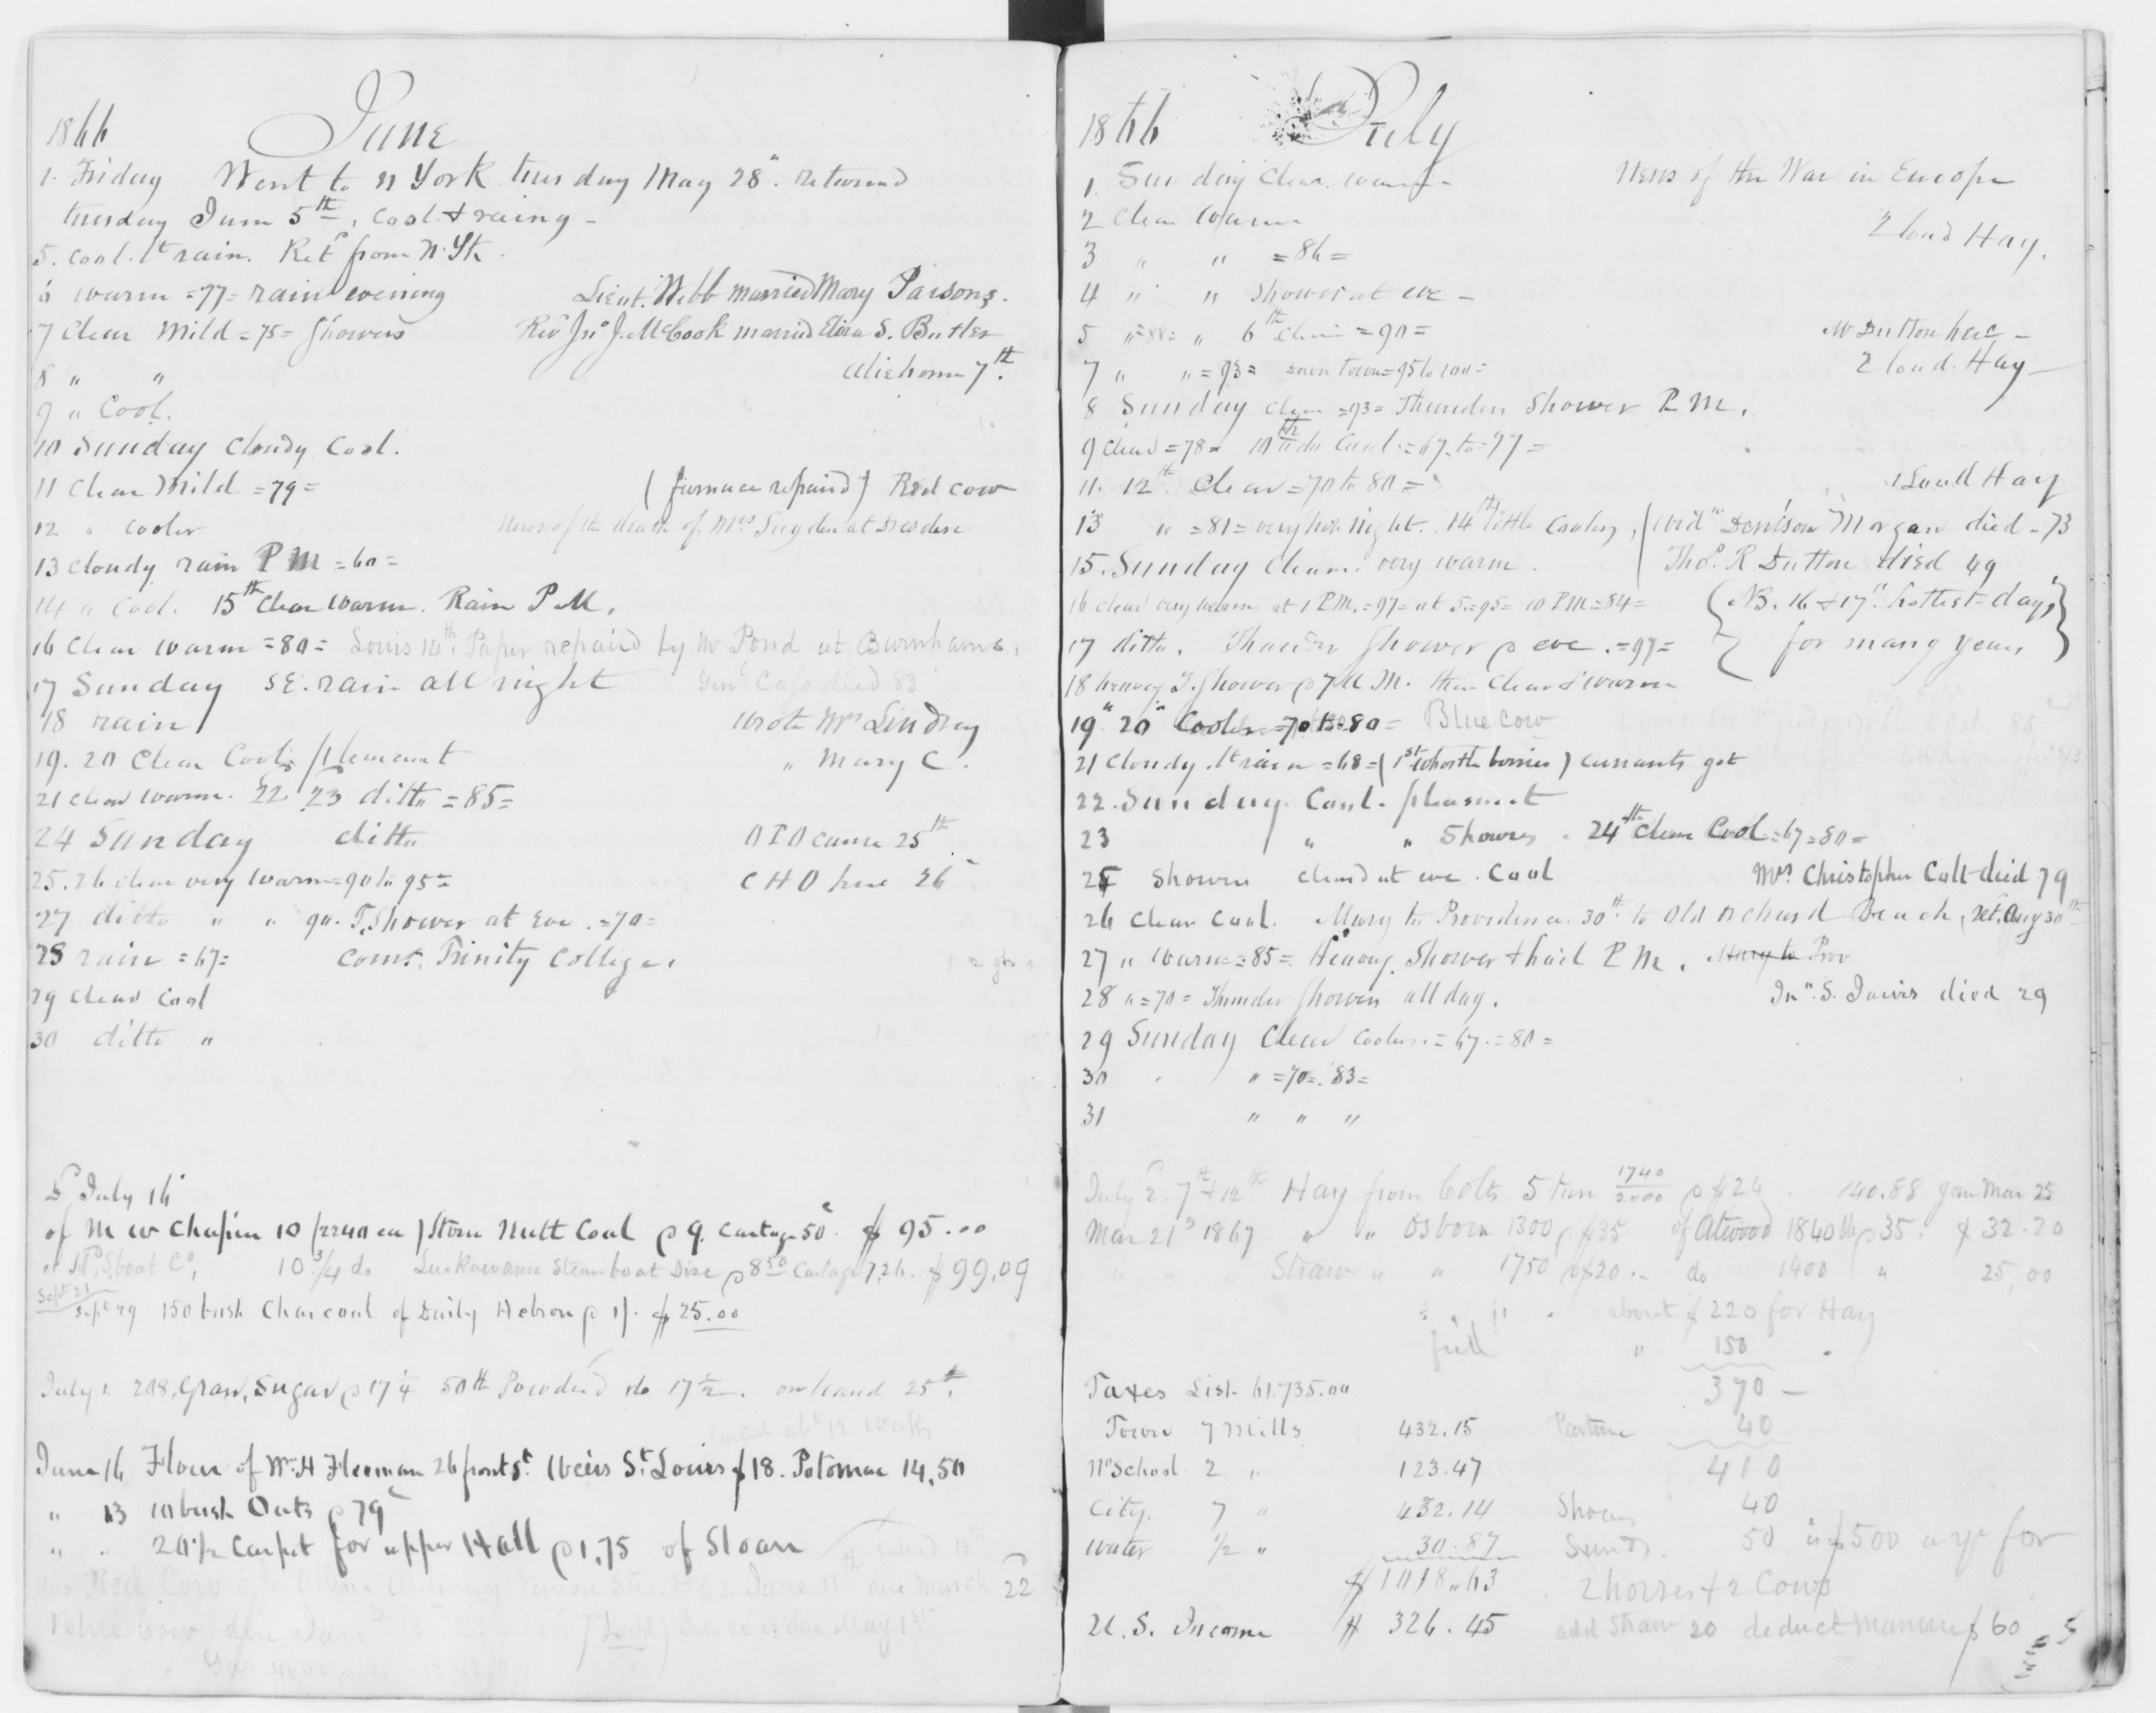 1866 June
1. Friday Went to N York tuesday May 28". returned
tuesday June 5th, Cool & rainy -
5. Cool. lt rain. Retd from N. Yk.
6 warm =77= rain evening Lieut. Webb married Mary Parsons.
7 Clear Mild =75= Showers Revd Jno J. McCook married Eliza S. Butler
8 " " home 7th.
9 " Cool.
10 Sunday Cloudy Cool.
11 Clear Mild =79= (furnace repaired) Red Cow
12 " cooler News of the death of Mrs at Dresden
13 Cloudy rain P M =60=
14 " Cool. 15th Clear Warm. Rain P.M.
16 Clear warm =80= Louis 14th. Paper repaired by Mr Pond at Burnhams,
17 Sunday S.E. rain all night Genl Cass died 83
18 rain Wrote Mrs Lindsay
19. 20 Clear Cool pleasant " Mary C.
21 Clear warm. 22 23 ditto =85=
24 Sunday ditto came 25th
25. 26 clear very warm =90 to 95=
27 ditto " " 90. T. Shower at Eve. =70=
28 rain =67= Comt. Trinity College.
29 Clear Cool
30 ditto "
July 16
of M W Chapin 10 (2240 ea) Stove Nutt Coal @ 9. Cartage 50c $ 95.00
10 3/4 do Lackawanna Steamboat Size @ 8 50 Cartage 7.26. $99.09
Sept 21
Sept 29 150 bush Charcoal of Daily Hebron @ 1/. $25.00
July 1. 208. Gran. Sugar @ 17 1/4 50 lb Powdered do 17 1/2. on hand 25 lb.
lasted abt 12 weeks
June 16 Flour of W. H 26 front St. St. Louis $18. Potomac 14.50
" 13 10 bush Oats @ 79c
" " 20 1/2 Carpet for upper Hall @ 1.75 of Sloan
Red Cow June 11th due March 22
Blue Cow due Jan July 20 is due May 1st
1866 July
1. Sunday Clear. warm - News of the War in Europe
2 Clear Warm 2 load Hay.
3 " " =86=
4 " " Shower at eve -
5 " =88= " 6th Clear =90= Mr Dutton here -
7 " " =93= down town =95 to 100= 2 load. Hay -
8 Sunday Clear =93= Thunder Shower P.M.
9 Clear =78= 10th do Cool =67. to =77=
11. 12th Clear =70 to 80= 1 Load Hay
13 " =81= very hot night. 14th little Cooler, (Wid" Denison Morgan died - 73
15. Sunday Clear. very warm. Thos. R. Dutton died 49
16 clear very warm at 1 P.M. =97= at 5 =95= 10 PM =84= (NB. 16 & 17" hottest days
17 ditto. Thunder Shower @ eve. =97= for many years)
18 heavy T. Shower @ 7 A.M. then Clear & warm
19" 20" Cooler =70 to 80= Blue Cow
21 Cloudy. lt rain =68= (1st Whortle berries) currants got
22. Sunday. Cool. pleasant
23 " " Showers. 24th Clear Cool =67=80=
25 Showers cleared at eve. Cool Mrs. Christopher Colt died 79
26 Clear Cool. Mary to Providence. 30th. to Old Orchard Beach, ret. Aug 30th
27 " Warm =85= Heavy. Shower & hail P.M. Mary to Prov
28 " =70= Thunder Showers all day. Jno. S. Jarvis died 29
29 Sunday Clear Cooler. =67.=80=
30 " " =70=.83=
31 " " "
July 2. 7th & 12th Hay from Colts 5 ton 1740/2000 @ $24. 140.88 gone Mar 25
Mar 21st 1867 " " Osborn 1300 @ $35 of Atwood 1840 lb @ 35. $ 32.20
" " " Straw " " 1750 @ $20.- do 1400 " 25.00
about $220 for Hay
feed " 150
Taxes List 61.735.00 370 -
Town 7 Mills 432.15 Pasture 40
No School 2 " 123.47 410
City. 7 " 432.14 Shoeing 40
Water 1/2 " 30.87 Sunds. 50 is $500 a yr for
$1018.63 2 horses & 2 Cows
U. S. Income $ 326.45 add Straw 20 deduct Manure $60